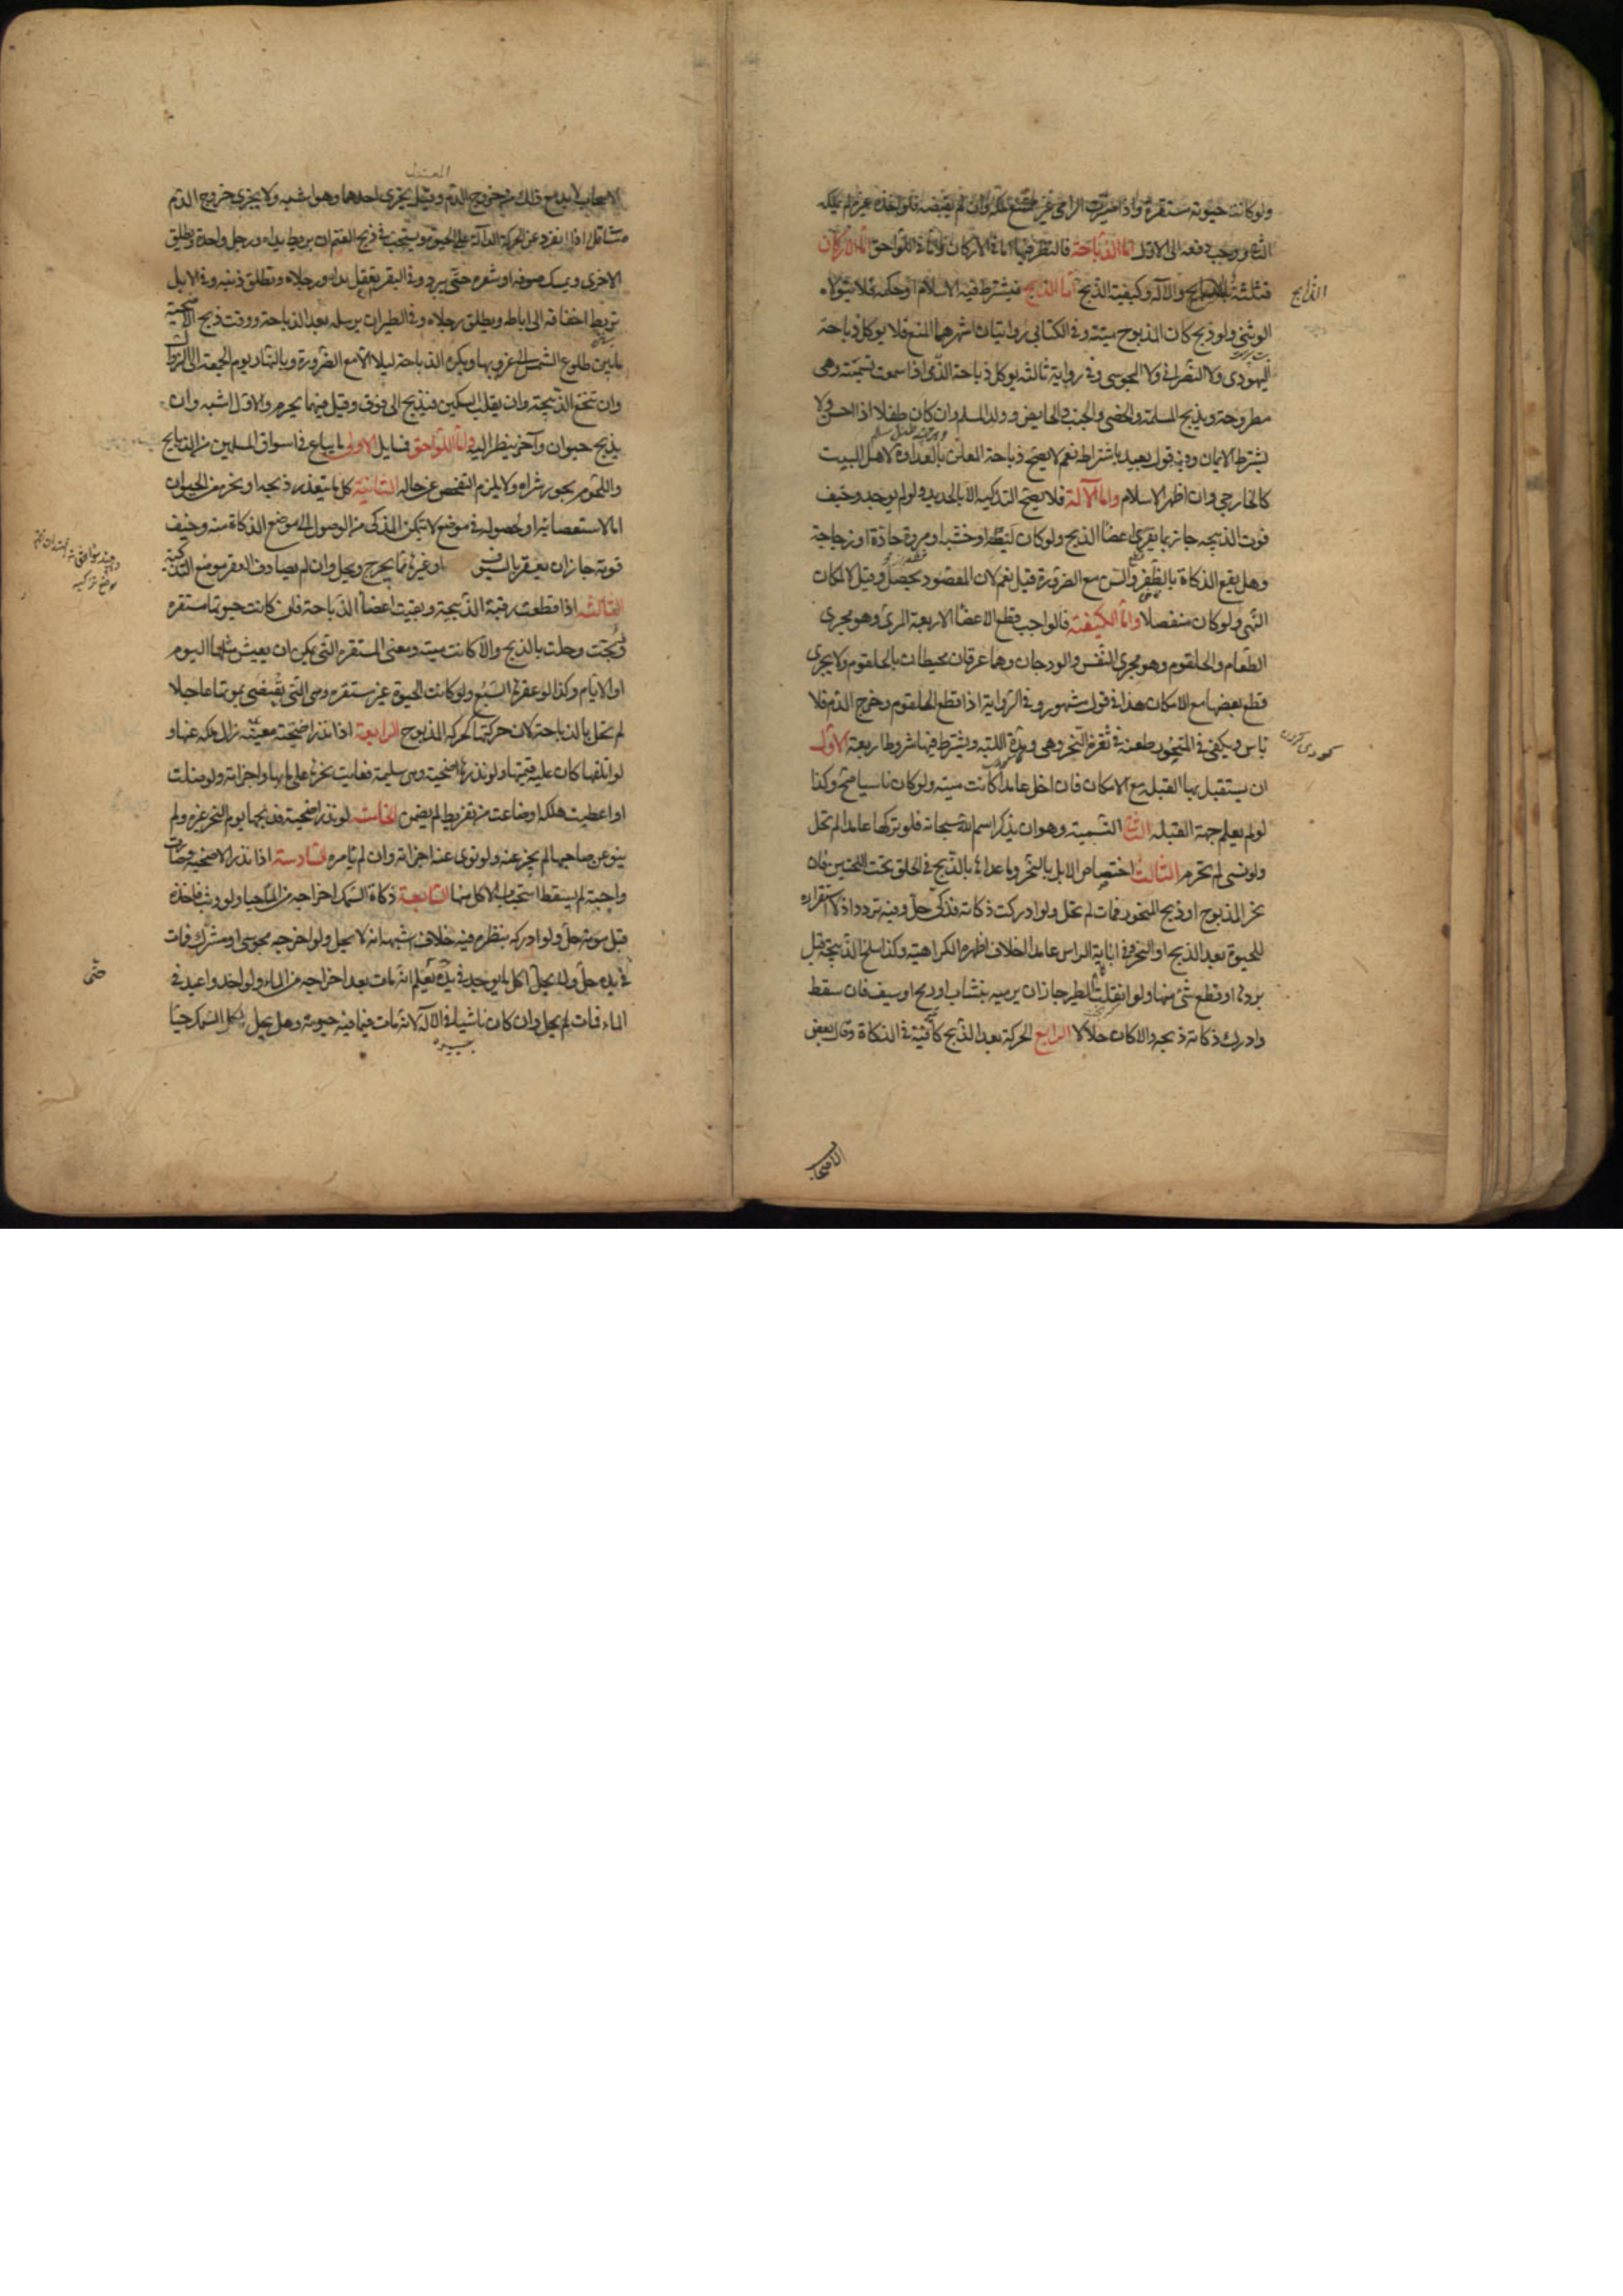 ولو كانت حيوته مستقرة واذا صيرت الرامي غير ممتنع ملكه وان لم يقبضه فلو اخذه غيره لم يملكه
الثاني ووجب دفعه الى الاول اما الذباحة فالنظر فيها اما في الاركان واما في اللواحق اما الاركان
فثلثة الذابح والآلة وكيفية الذبح اما الذابح فيشترط فيه الاسلام او حكمه فلا يتولاه
الذابح
الوثني ولو ذبح كان المذبوح ميتة وفي الكتابي روايتان اشهرهما المنع فلا يوكل ذباحة
اليهودي ولا النصراني ولا المجوسي وفي رواية ثالثة يوكل ذباحة الذمي اذا سمعت تسميته وهي
مطروحة ويذبح المسلمة والخصي والجنب والحايض وولد المسلم وان كان طفلا اذا احسن ولا
يشترط الايمان وفيه قول بعيد باشتراطه نعم لا يصح ذباحة المعلن بالعداوة لاهل البيت
كالخارجي وان اظهر الاسلام واما الآلة فلا يصح التذكية الا بالحديد ولو لم يوجد وخيف
فوت الذبيحه جاز بما يفري اعضاء الذبح ولو كان ليطة او خشبه او مروة حادة او زجاجة
وهل يقع الذكاة بالظفر والسن مع الضرورة قيل نعم لان المقصود يحصل وقيل لا لمكان
النهي ولو كان منفصلا واما الكيفية فالواجب قطع الاعضاء الاربعة المرئ وهو مجرى
الطعام والحلقوم وهو مجرى النفس والودجان وهما عرقان محيطان بالحلقوم ولا يجزى
قطع بعضها مع الامكان هذا في قول مشهور وفي الرواية اذا قطع الحلقوم وخرج الدم فلا
باس ويكفي في المنحور طعنه في ثغرة النحر وهي وهدة اللبة ويشترط فيها شروط اربعة الاول
كودى كردن
ان يستقبل بها القبلة مع الامكان فان اخل عامدا كانت ميته ولو كان ناسيا صح وكذا
لو لم يعلم جهة القبله الثاني التسمية وهو ان يذكر اسم الله سبحانه فلو تركها عامدا لم تحل
ولو نسى لم تحرم الثالث اختصاص الابل بالنحر وما عداها بالذبح في الحلق تحت اللحيين فان
نحر المذبوح او ذبح المنحور فمات لم تحل ولو ادركت ذكاته فذكى حل وفيه تردد اذ لا استقرار
للحيوة بعد الذبح او النحر وفي ابانة الراس عامدا خلاف اظهره الكراهية وكذا سلخ الذبيحة قبل
بردها او قطع شئ منها ولو انفلت الطير جاز ان يرميه بنشاب او رمح او سيف فان سقط
وادرك ذكاته ذبحه والا كان حلالا الرابع الحركة بعد الذبح كافية في الذكاة وقال بعض
الاصحاب
الاصحاب لابد مع ذلك من خروج الدم وقيل يجزى احدهما وهو اشبه ولا يجزى خروج الدم
متثاقلا اذا انفرد عن الحركة الدالة على الحيوة ويستحب في ذبح الغنم ان يربط يداه ورجل واحدة ويطلق
الاخرى ويمسك صوفه او شعره حتى يبرد وفي البقر يعقل يداه ورجلاه ويطلق ذنبه وفي الابل
تربط اخفافه الى اباطه ويطلق رجلاه وفي الطير ان يرسله بعد الذباحة ووقت ذبح الاضحية
ما بين طلوع الشمس الى غروبها ويكره الذباحة ليلا الا مع الضرورة وبالنهار يوم الجمعة الى الزوال
وان تنخع الذبيحة وان يقلب السكين فيذبح الى فوق وقيل فيهما يحرم والاول اشبه وان
يذبح حيوان وآخر ينظر اليه واما اللواحق فمسايل الاولى ما يباع في اسواق المسلمين من الذبايح
واللحوم يجوز شراه ولا يلزم التفحص عن حاله الثانية كل ما يتعذر ذبحه او نحره من الحيوان
اما لاستعصائه او لحصوله في موضع لا يتمكن المذكي من الوصول الى موضع الذكاة منه وخيف
فوته جاز ان يعقر بالسيوف او غيرها مما يجرح ويحل وان لم يصادف العقر موضع التذكية
الثالثة اذا قطعت رقبة الذبيحة وبقيت اعضاء الذباحة فان كانت حيوتها مستقرة
ذبحت وحلت بالذبح والا كانت ميتة ومعنى المستقرة التي يمكن ان يعيش مثلها اليوم
او الايام وكذا لو عقرها السبع ولو كانت الحيوة غير مستقره وهي التي يقضى بموتها عاجلا
لم تحل بالذباحة لان حركتها كحركة المذبوح الرابعة اذا نذر اضحية معينة زال ملكه عنها و
لو اتلفها كان عليه قيمتها ولو نذرها اضحية وهي سليمة فعابت نحرها على ما بها واجزاته ولو ضلت
او اعطبت هلكا او ضاعت من غير تفريط لم يضمن الخامسة لو نذر اضحية فذبحها يوم النحر غيره ولم
ينو عن صاحبها لم يجز عنه ولو نوى عنه اجزاته وان لم يامره السادسة اذا نذر الاضحية وصارت
واجبة لم يسقط استحباب الاكل منها السابعة ذكاة السمك اخراجه من الماء حيا ولو وثب فاخذه
قبل موته حل ولو ادركه بنظره فيه خلاف اشبهه انه لا يحل ولو اخرجه مجوسي او مشرك فمات
في يده حل ولا يحل اكل ما يوجد في يده حتى يعلم انه مات بعد اخراجه من الماء ولو اخذ واعيد في
حتى
الماء فمات لم يحل وان كان ناشبا في الآلة لانه مات فيما فيه حيوته وهل يحل اكل السمك حيا